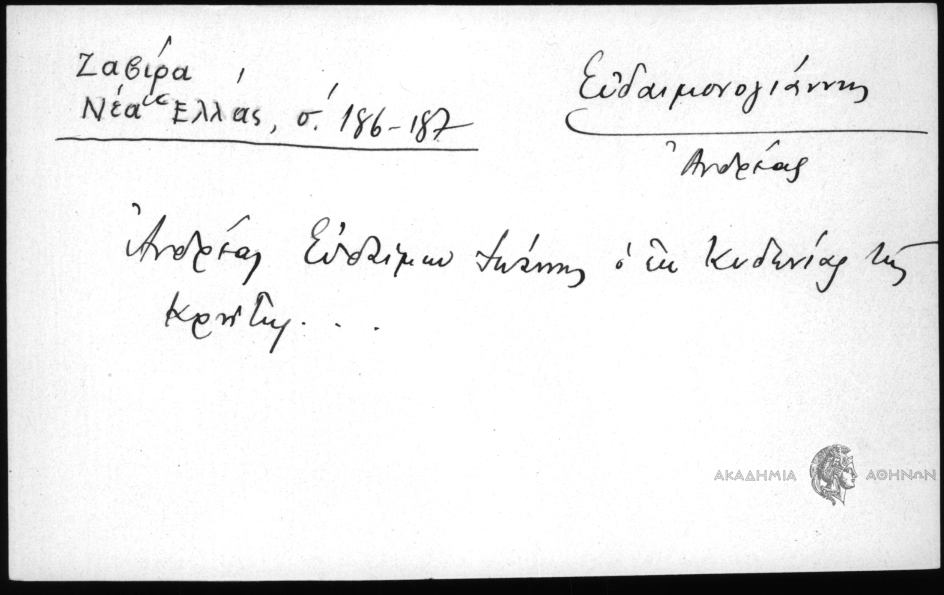 Ζαβίρα
Νέα Ἑλλάς, σ. 186-187
Εὐδαιμονογιάννης
Ἀνδρέας
Ἀνδρέας Εὐδαίμων Ἰωάννης ὁ ἐκ Κυδωνίας τῆς
Κρήτης. . .
ΑΚΑΔΗΜΙΑ ΑΘΗΝΩΝ